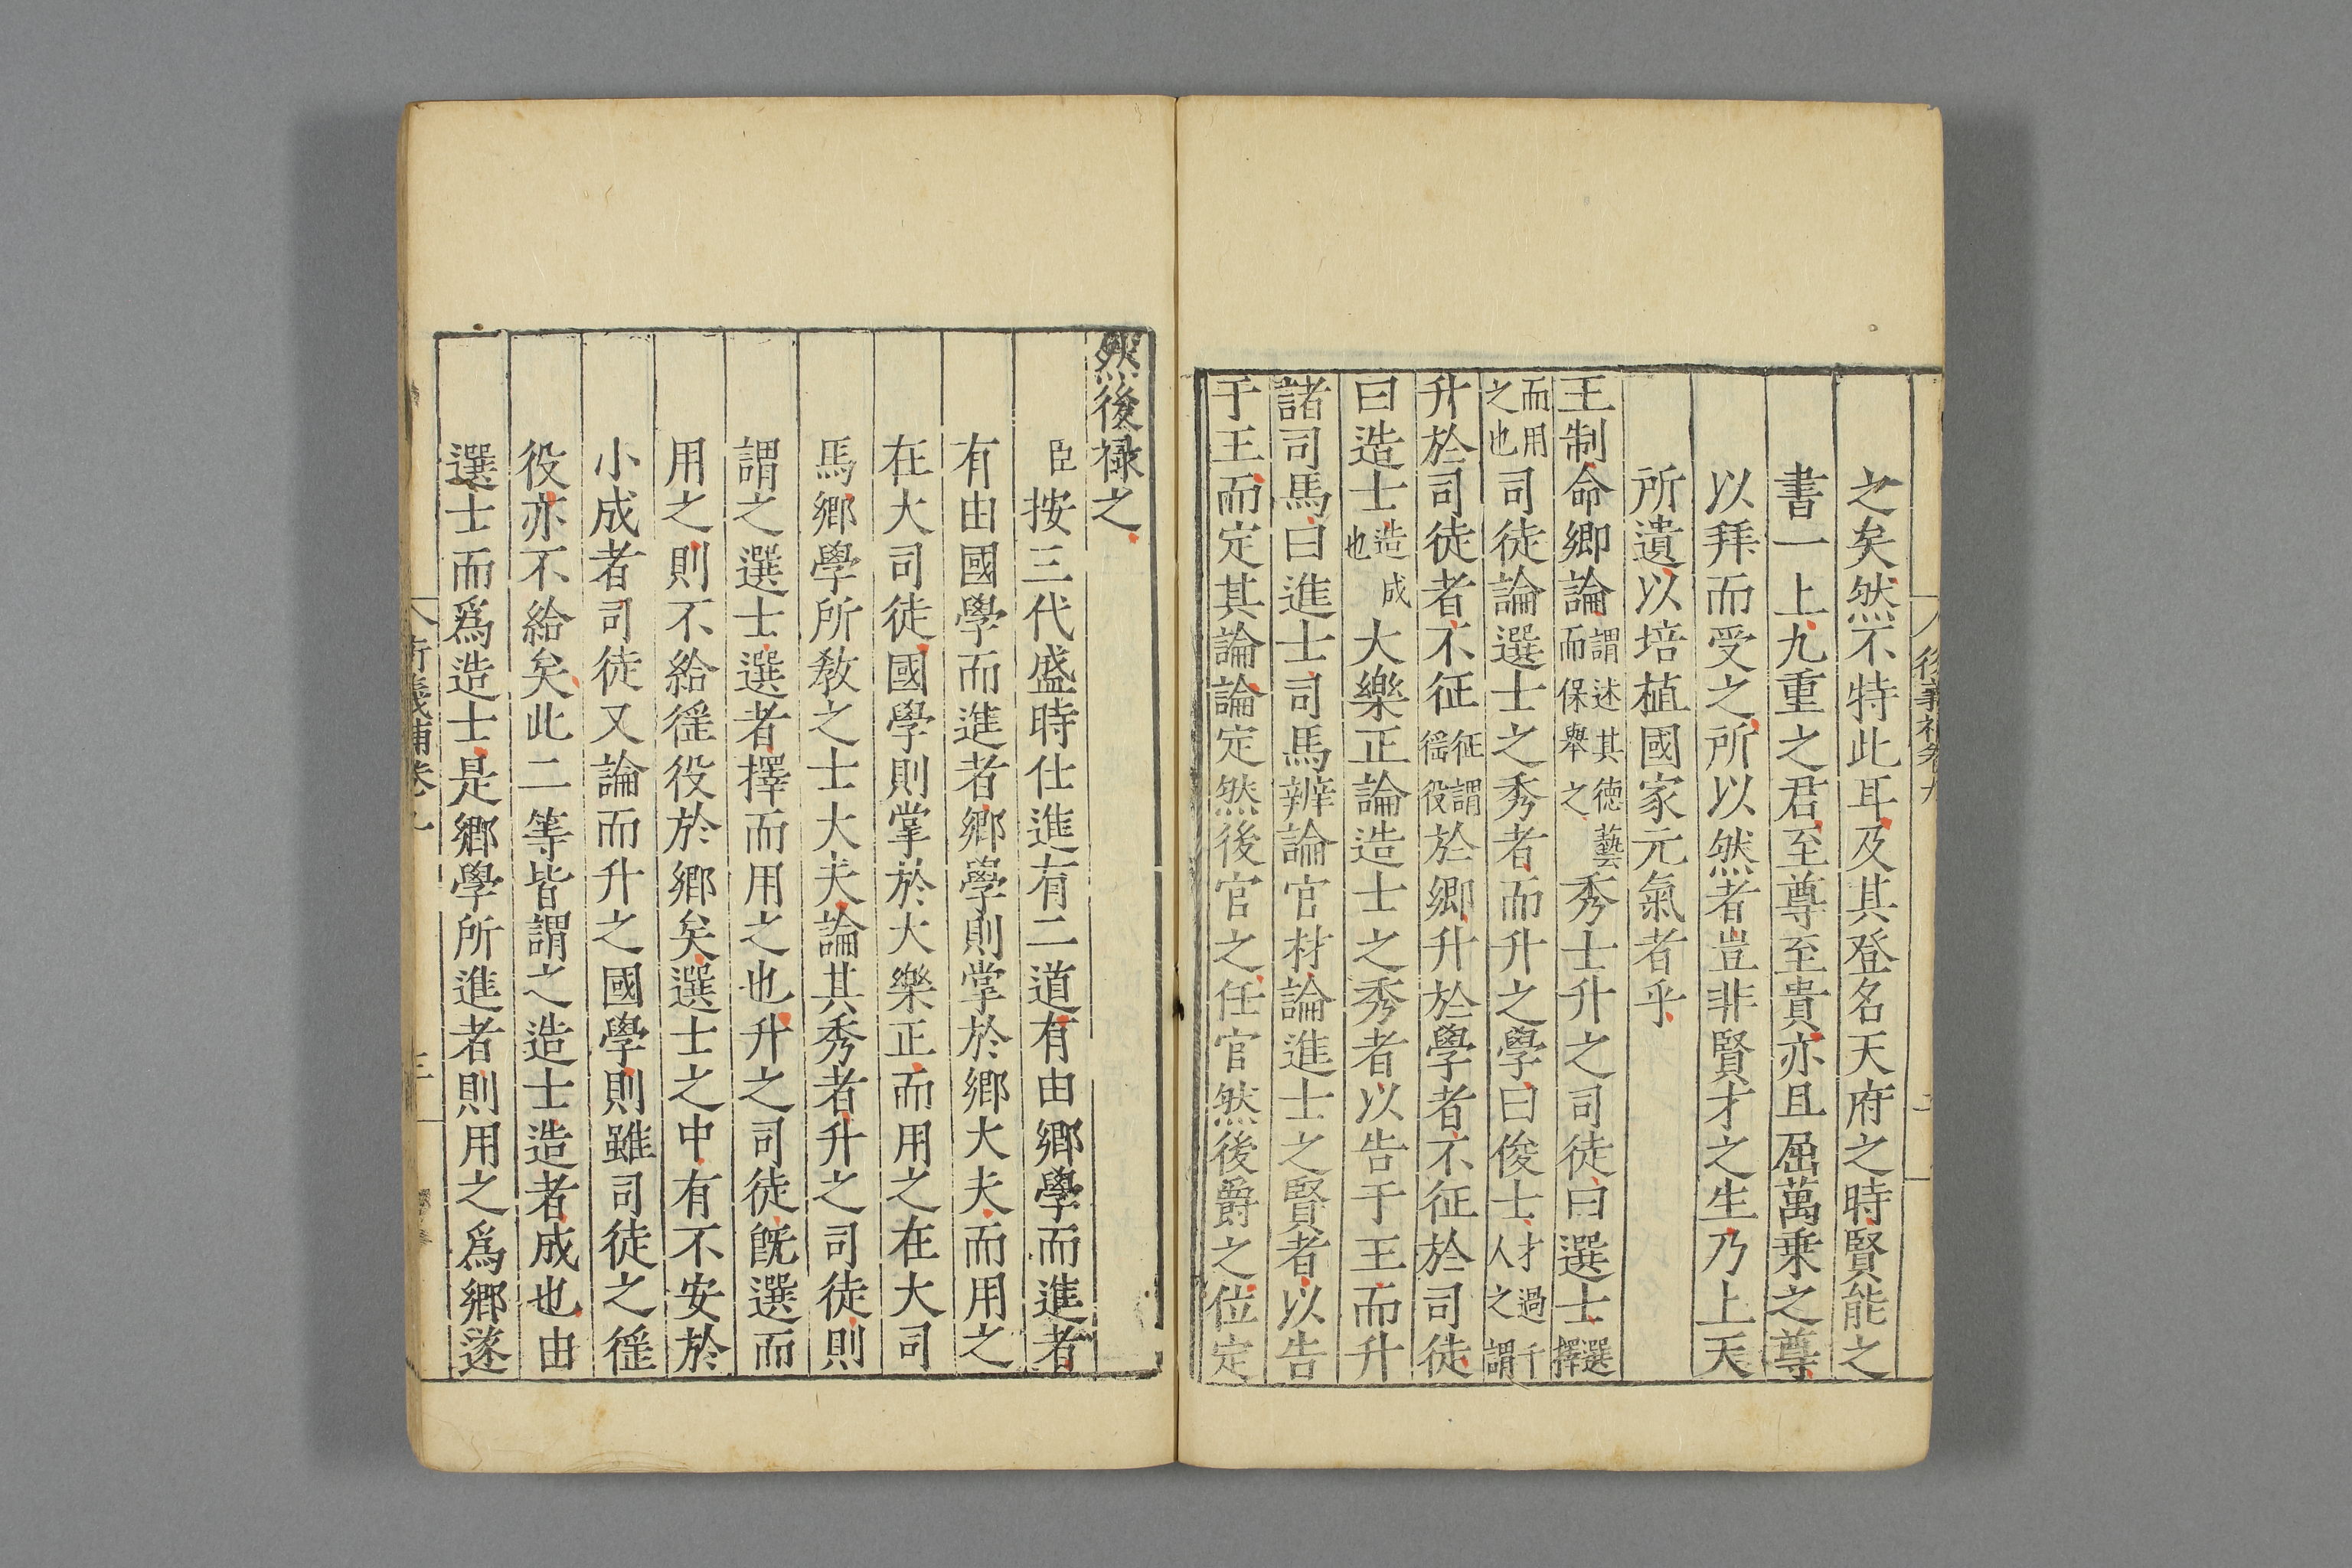 之矣然不特此耳及其登名天府之時賢能之
書一上九重之君至尊至貴亦且屈萬乗之尊
以拜而受之所以然者豈非賢才之生乃上天
所遺以培植國家元氣者乎
王制命鄉論謂述其德藝而保舉之秀士升之司徒曰選士選擇
而用之也司徒論選士之秀者而升之學曰俊士才過千人之謂
升於司徒者不征征謂徭役於鄉升於學者不征於司徒
曰造士造成也大樂正論造士之秀者以告于王而升
諸司馬曰進士司馬辨論官材論進士之賢者以告
于王而定其論論定然後官之任官然後爵之位定
然後祿之
臣按三代盛時仕進有二道有由鄉學而進者
有由國學而進者鄉學則掌於鄉大夫而用之
在大司徒國學則掌於大樂正而用之在大司
馬鄉學所教之士大夫論其秀者升之司徒則
謂之選士選者擇而用之也升之司徒旣選而
用之則不給徭役於鄉矣選士之中有不安於
小成者司徒又論而升之國學則雖司徒之徭
役亦不給矣此二等皆謂之造士造者成也由
選士而爲造士是鄉學所進者則用之爲鄉遂